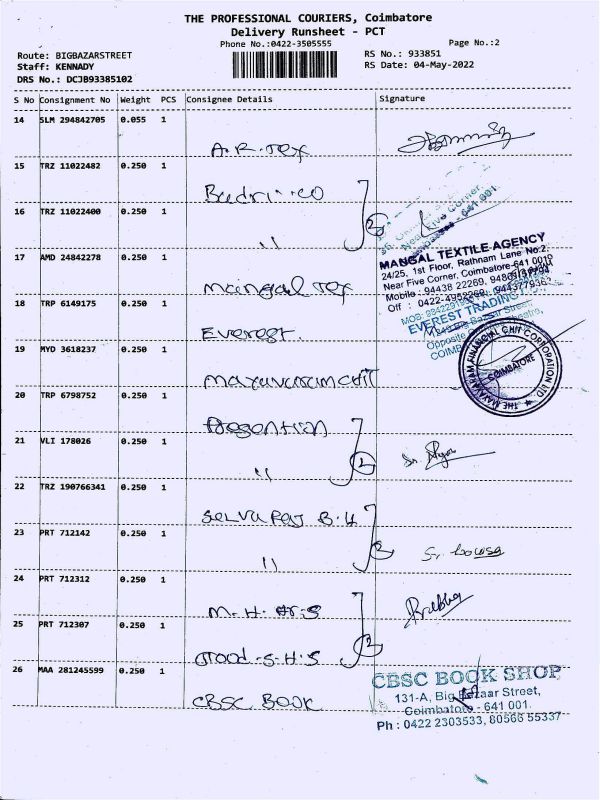 THE PROFESSIONAL COURIERS, Coimbatore
Delivery Runsheet - PCT
Phone No.:0422-3505555
Page No.:2
Route: BIGBAZARSTREET
Staff: KENNADY
DRS No.: DCJB93385102
RS No.: 933851
RS Date: 04-May-2022
S No Consignment No Weight PCS Consignee Details Signature
14 SLM 294842705 0.055 1
A.R. Tex
15 TRZ 11022482 0.250 1
Badri
16 TRZ 11022400 0.250 1
"
Near Five Corner,
- 641 001.
17 AMD 24842278 0.250 1
Mangal Tex
MANGAL TEXTILE AGENCY
24/25, 1st Floor, Rathnam Lane No:2,
Near Five Corner, Coimbatore-641 001
Mobile : 94438 22269,
Off : 0422-4952269,
18 TRP 6149175 0.250 1
Everest.
EVEREST TRADING
Big Bazaar Street,
Opposite
19 MYD 3618237 0.250 1
THE MAYAVARAM FINANCIAL CHIT CORPORATION LTD
COIMBATORE
20 TRP 6798752 0.250 1
21 VLI 178026 0.250 1
"
22 TRZ 190766341 0.250 1
Selva Raj B.H
23 PRT 712142 0.250 1
"
24 PRT 712312 0.250 1
M.H.
Prabha
25 PRT 712307 0.250 1
Good.S.H.S
26 MAA 281245599 0.250 1
CBSC Book
CBSC BOOK SHOP
131-A, Big Bazaar Street,
Coimbatore - 641 001.
Ph : 0422 2303533, 80566 55337